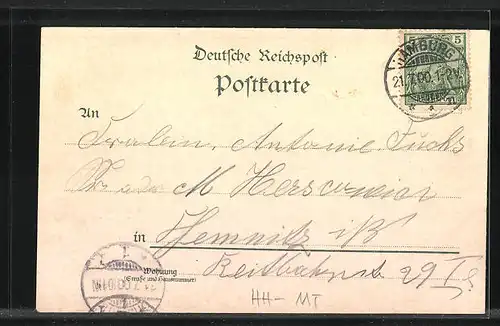 Deutsche Reichspost
Postkarte
5 5
HAMBURG
21.7.00.
An
Fralein, Antonie Fuchs
M
in Chemnitz i/S
Wohnung
(Straße und Hausnummer)
Reitbahnst 29 I
HH-MT